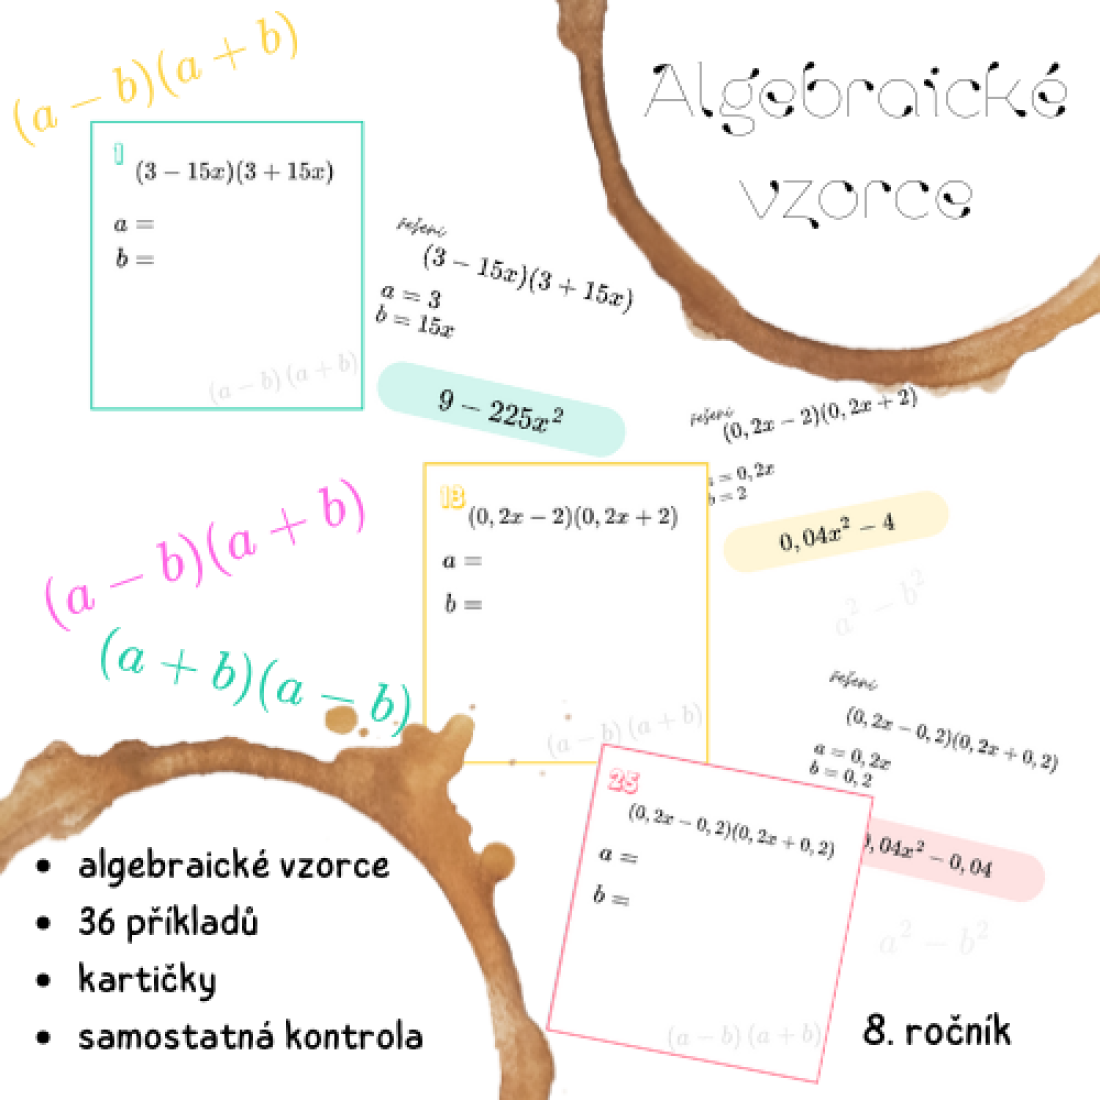 (a − b)(a + b)
Algebraické
vzorce
1
(3 − 15x)(3 + 15x)
a =
b =
(a − b) (a + b)
řešení
(3 − 15x)(3 + 15x)
a = 3
b = 15x
9 − 225x²
řešení
(0, 2x − 2)(0, 2x + 2)
= 0, 2x
b = 2
0, 04x² − 4
a² − b²
13
(0, 2x − 2)(0, 2x + 2)
a =
b =
(a − b) (a + b)
(a − b)(a + b)
(a + b)(a − b)
řešení
(0, 2x − 0, 2)(0, 2x + 0, 2)
a = 0, 2x
b = 0, 2
0, 04x² − 0, 04
a² − b²
25
(0, 2x − 0, 2)(0, 2x + 0, 2)
a =
b =
(a − b) (a + b)
• algebraické vzorce
• 36 příkladů
• kartičky
• samostatná kontrola
8. ročník